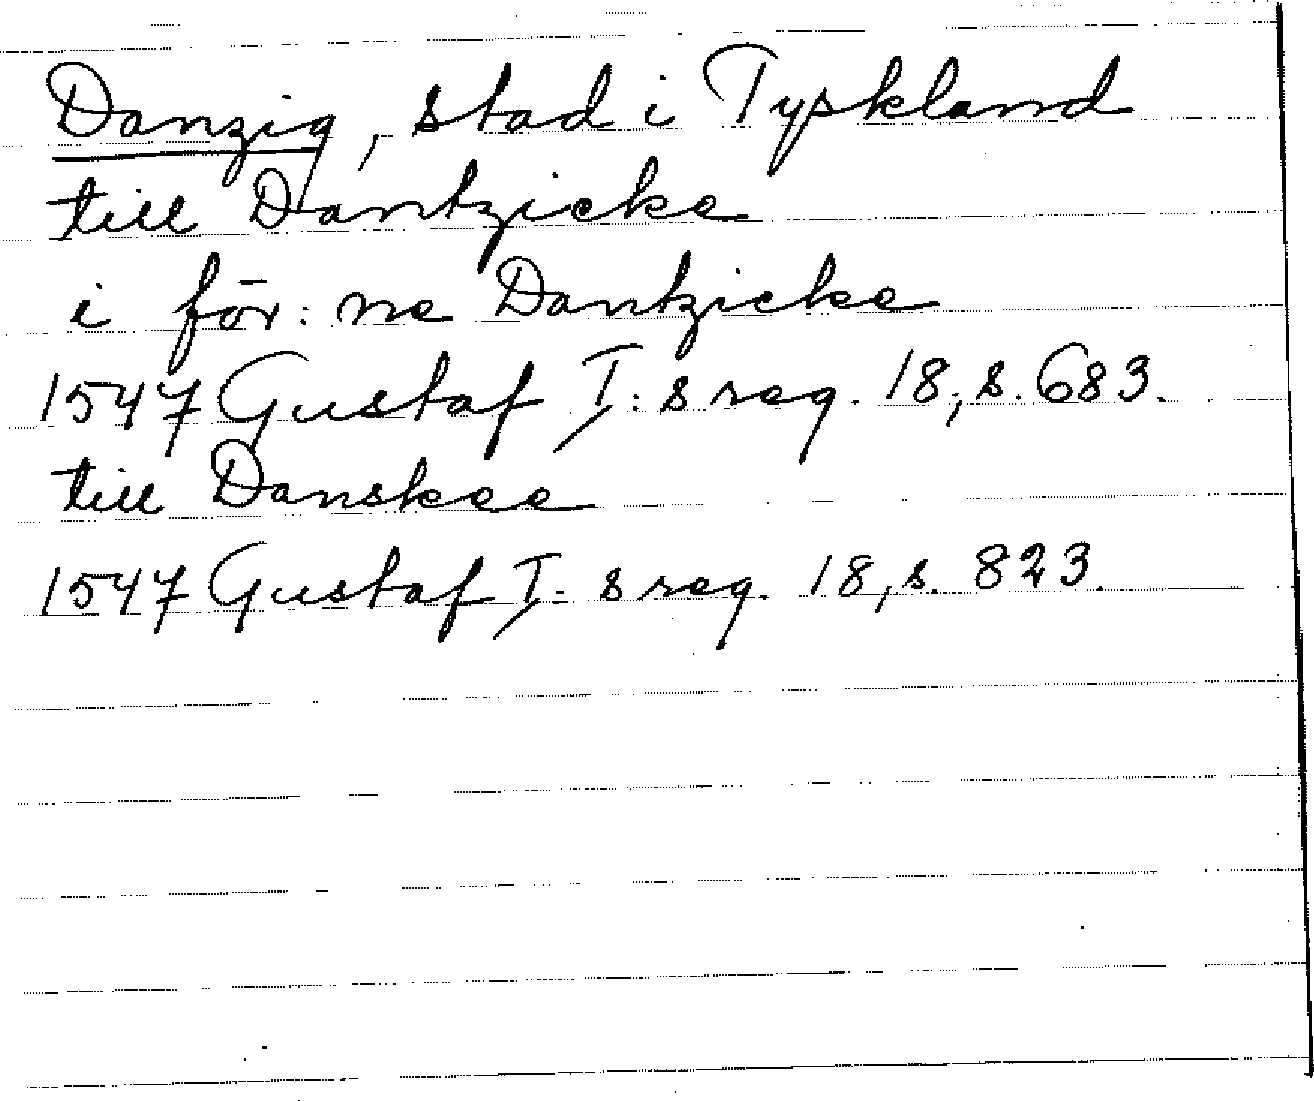 Danzig, stad i Tyskland
till Dantzicke
i för: ne Dantzicke
1547 Gustaf I: s reg. 18, s. 683.
till Danskee
1547 Gustaf I: s reg. 18, s. 823.